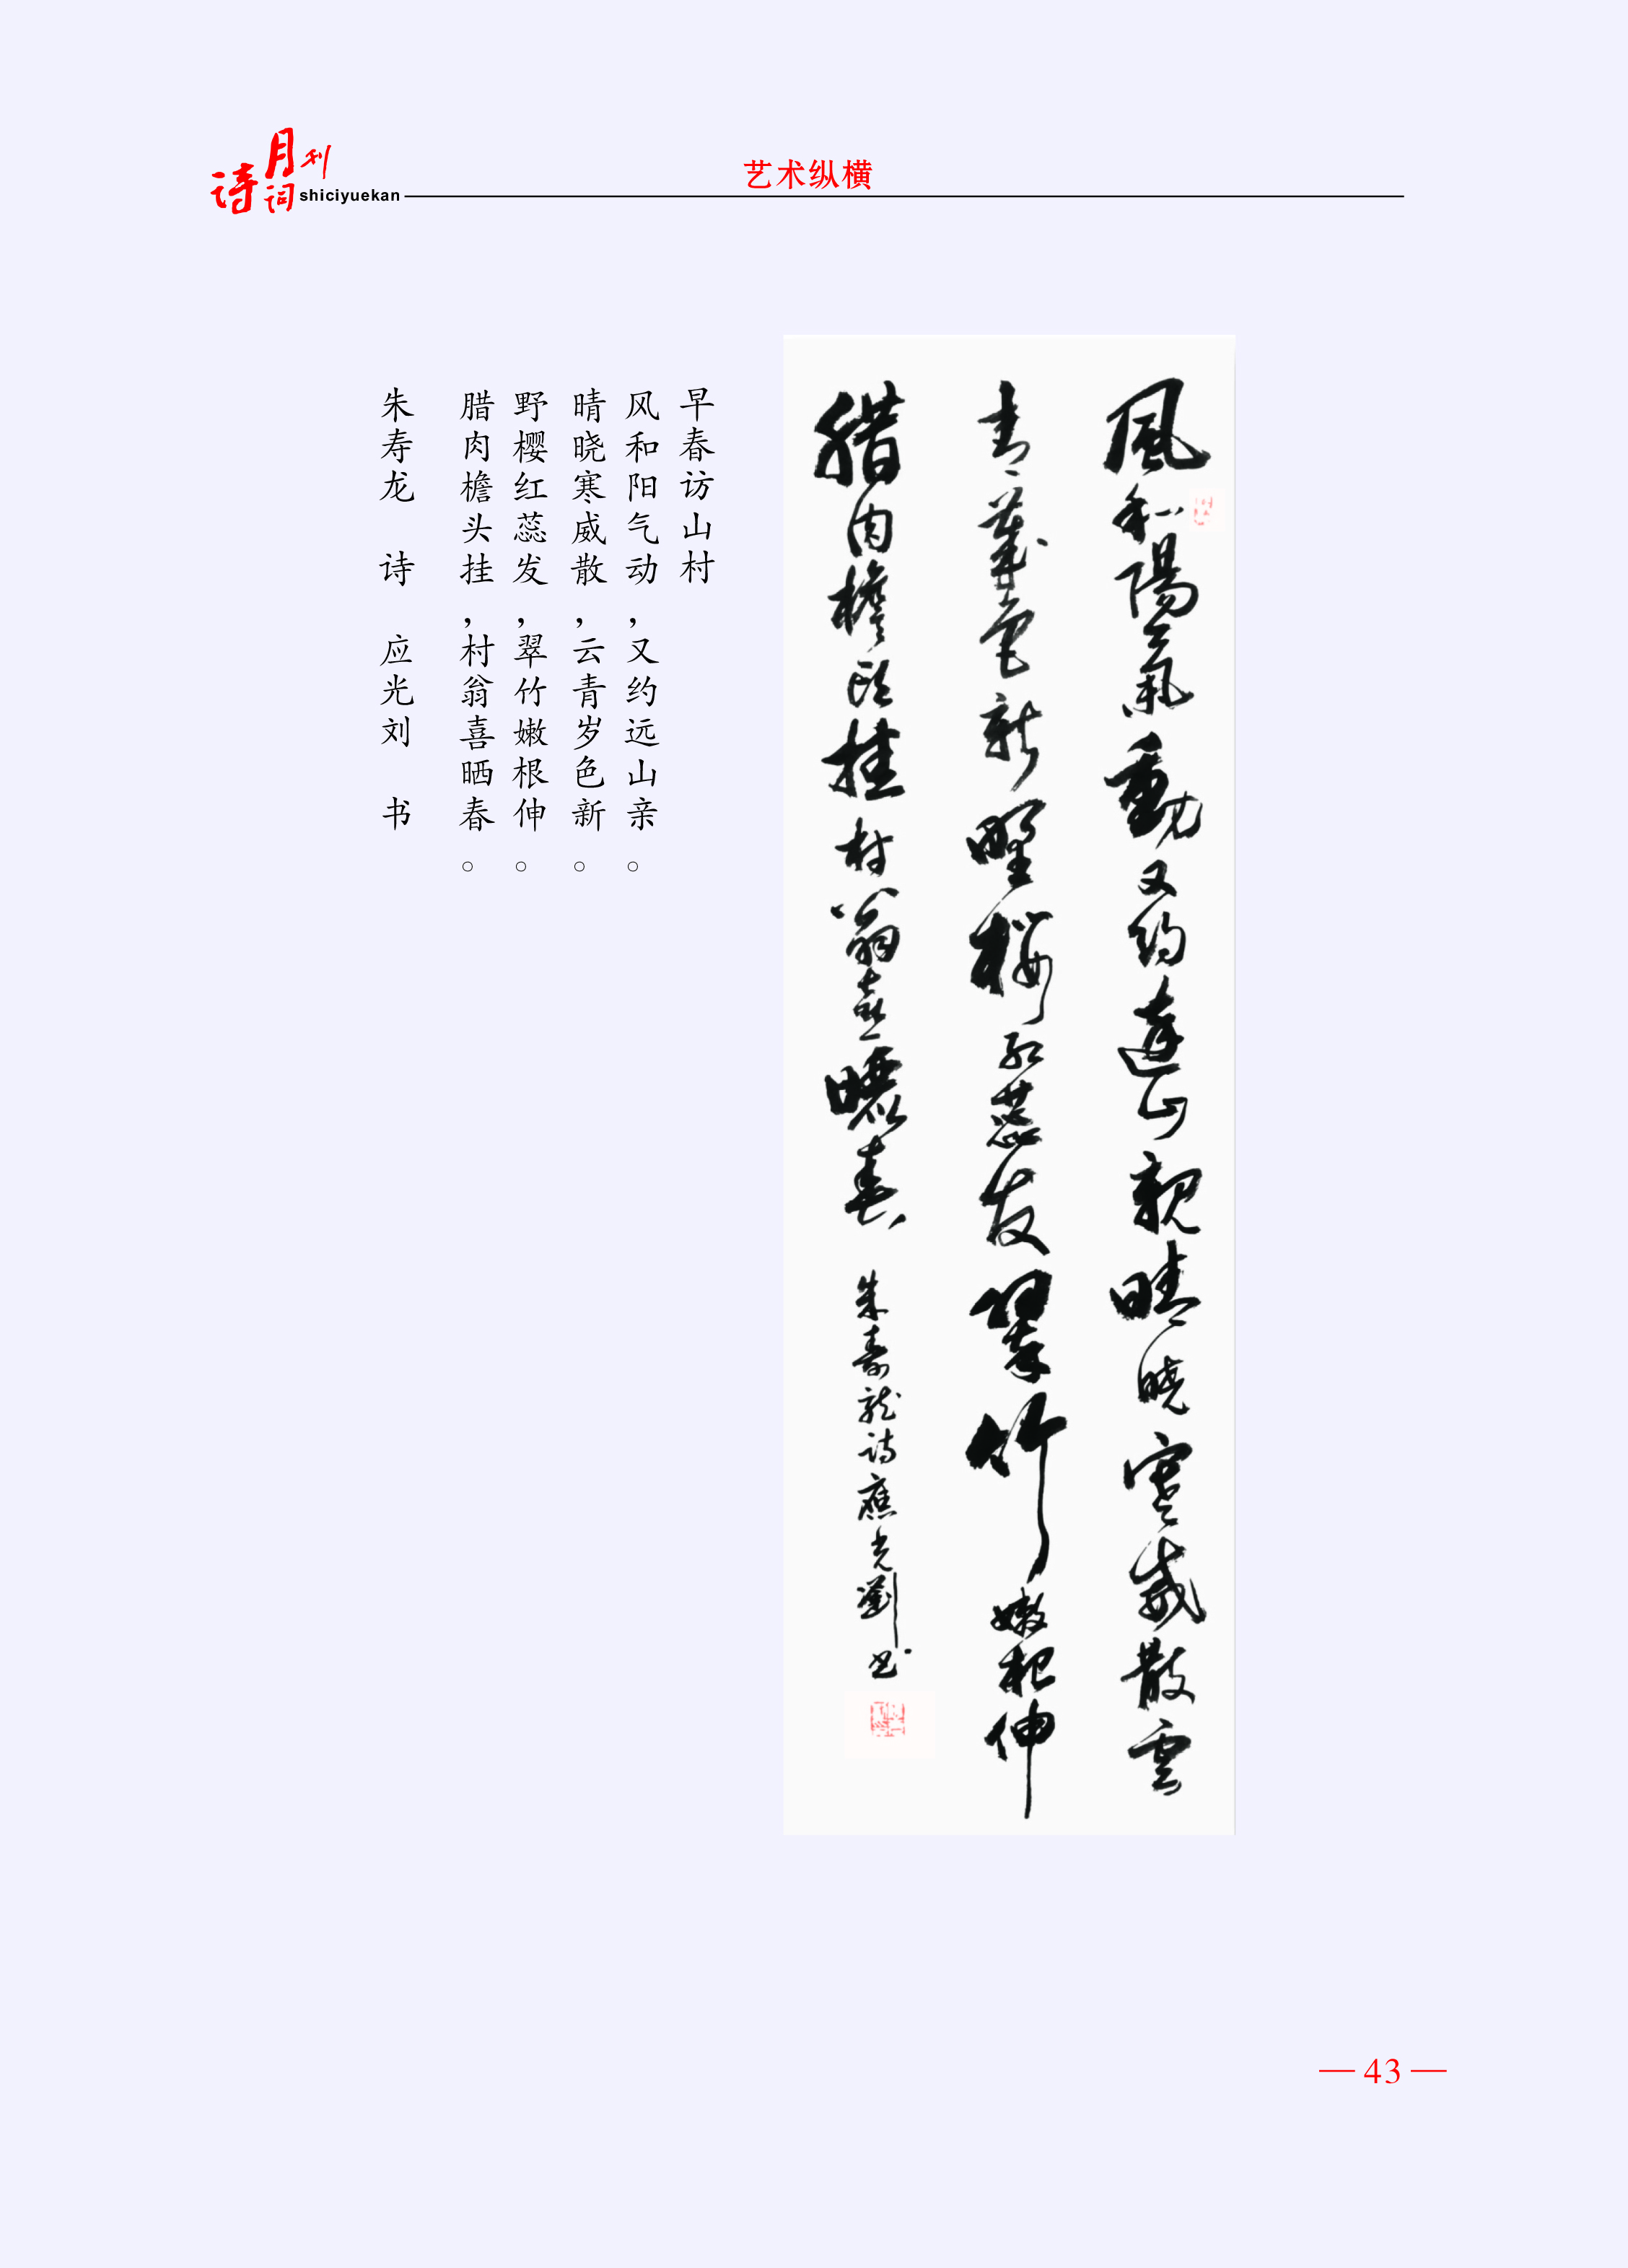 诗词月刊
shiciyuekan
艺术纵横
風和陽氣動又約遠山親晴曉寒威散雲
青歲色新野櫻紅蕊发翠竹嫩根伸
腊肉檐头挂村翁喜曬春
朱壽龍诗應光劉书
早春访山村
风和阳气动，又约远山亲。
晴晓寒威散，云青岁色新。
野樱红蕊发，翠竹嫩根伸。
腊肉檐头挂，村翁喜晒春。
朱寿龙 诗 应光刘 书
— 43 —